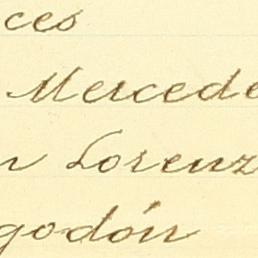 ces
Mercede
n Lorenz
godón